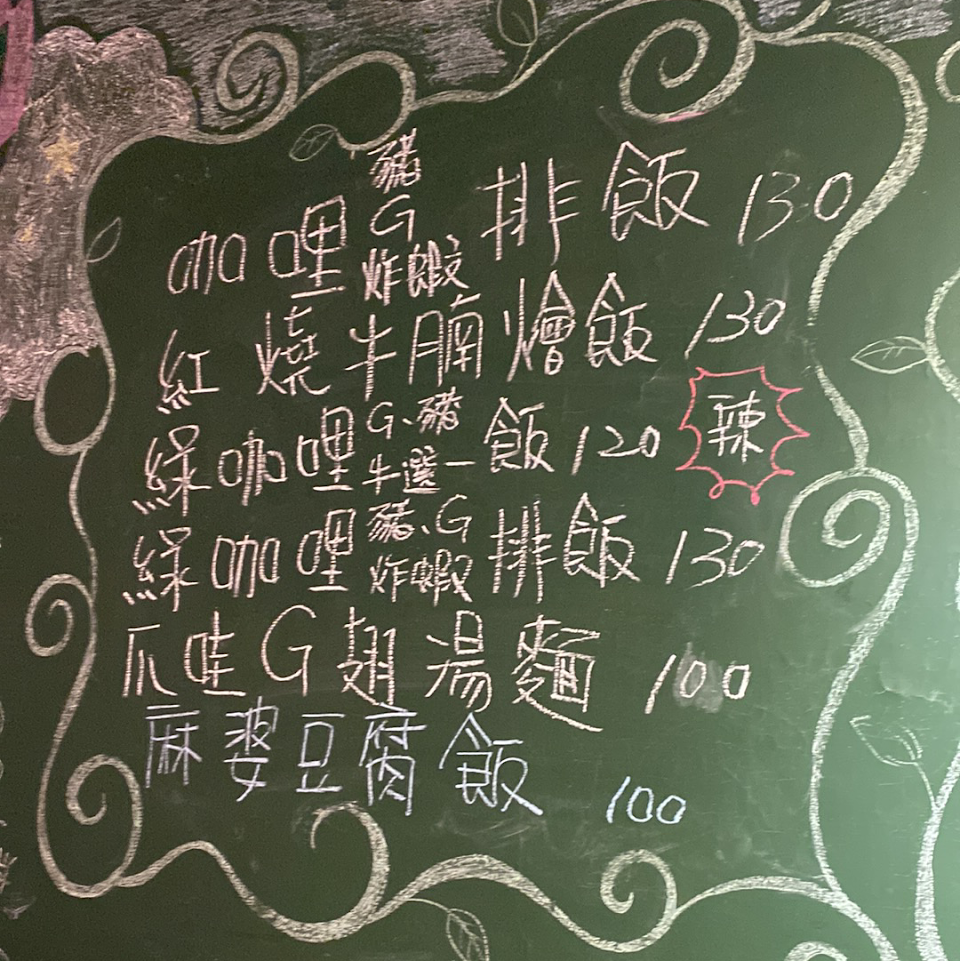 咖哩豬G炸蝦排飯 130
紅燒牛腩燴飯 130
綠咖哩G、豬牛選一飯 120 辣
綠咖哩豬、G炸蝦排飯 130
爪哇G翅湯麵 100
麻婆豆腐飯 100